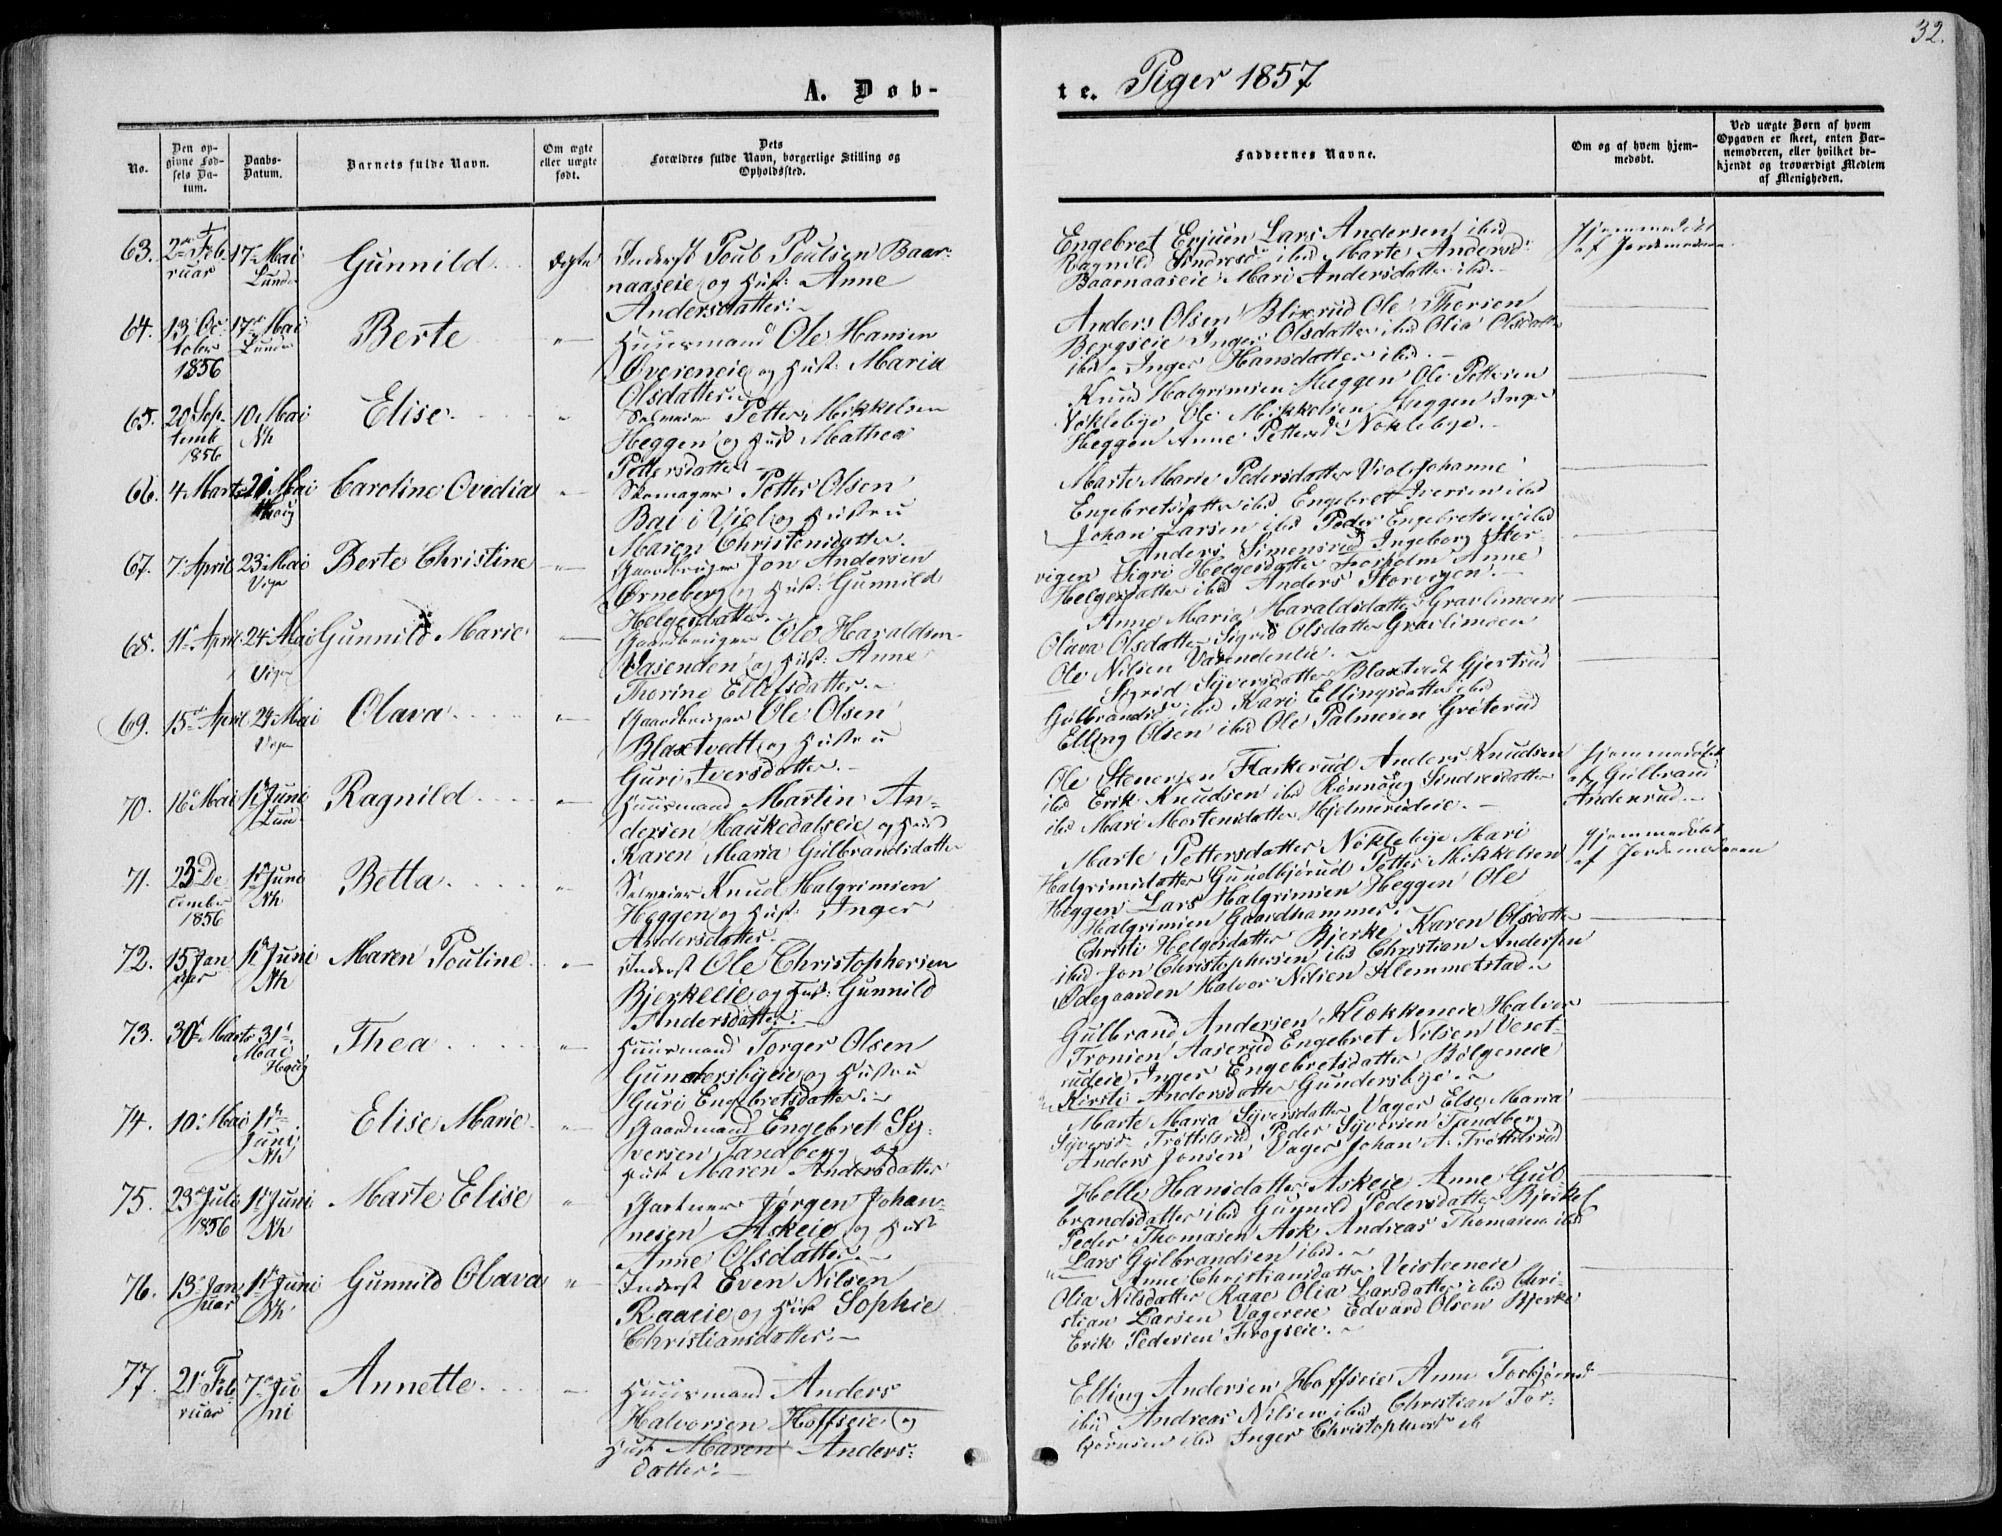 32.
A. Døb-
te. Piger 1857
No.
Den op-
givne Fød-
sels Da-
tum.
Daabs-
Datum.
Barnets fulde Navn.
Om ægte
eller uægte
født.
Dets
Forældres fulde Navn, borgerlige Stilling og
Opholdssted.
Faddernes Navne.
Om og af hvem hjem-
medøbt.
Ved uægte Børn af hvem
Opgaven er skeet, enten Bar-
nemoderen, eller hvilket be-
kjendt og troværdigt Medlem
af Menigheden.
63. 2den Feb
ruar
17. Mai
Lunder
Gunnild
Ægte
Inderst Poul Poulsen Baar-
naaseie og Hust: Anne
Andersdatter.
Engebret Lars Andersen ibid
Ragnild ibid Marte Andersd
Baarnaaseie Mari Andersdatter ibid.
Hjemmedøbt
af Jordemoderen
64. 13. Oc
tober
1856
17. Mai
Lunder
Berte
Huusmand Ole Hansen
Øvereneie og Hust: Maria
Olsdatter.
Anders Olsen Blixrud Ole
Bergseie Inger Olsdatter ibid Olia Olsdatter
ibid Inger Hansdatter ibid.
65. 20 Sep
temb
1856
10. Mai
Nh
Elise.
Selveier Petter Mikkelsen
Heggen og Hust Mathea
Pettersdatter
Knud Halgrimsen Heggen Ole Pettersen
Nøklebye Ole Mikkelsen Heggen Inger
Heggen Anne Pettersd Nøklebye.
66. 4 Marts 21 Mai
Haug
Caroline Ovedia
Skomager Petter Olsen
Bai i Viol og Hustru
Maren Christensdatter.
Marte Marie Pedersdatter Viol Johanne
Engebretsdatter ibid Engebret Iversen ibid
Johan Larsen ibid Peder Engebretsen ibid
67. 7. April 23. Mai
Viger
Berte Christine
Gaardbruger Jon Andersen
Ørneberg og Hust: Gunnild
Helgesdatter.
Anders Simensrud Ingeborg Stor-
vigen Sigri Helgesdatter Anne
Helgesdatter ibid Anders Storvigen.
68. 11. April 24. Mai
Viger
Gunnild Marie
Gaardbruger Ole Haraldsen
Vasenden og Hust: Anne
Thorine Ellefsdatter.
Anne Maria Haraldsdatter Gravlimoen
Olava Olsdatter Sigrid Olsdatter Gravlimoen
Ole Nilsen Vasendenlie.
69. 15. April 24. Mai
Viger
Olava
Gaardbruger Ole Olsen
Blaxtvedt og Hustru
Guri Iversdatter.
Sigrid Syversdatter Blaxtvedt Gjertrud
Gulbrandsd ibid Kari Ellingsdatter ibid
Elling Olsen ibid Ole Palmesen Grøterud
70. 16. Mai 1 Juni
Lund
Ragnild
Huusmand Martin An-
dersen Haukedalseie og Hust
Karen Maria Gulbrandsdatter
Ole Stenersen Flaskerud Anders Knudsen
ibid Erik Knudsen ibid Rønnaug Sindresdatter
ibid Mari Mortensdatter Hjelmerudeie.
Hjemmedøbt
af Gulbrand
Anderrud.
71. 23 De
cember
1856
1 Juni
Nh
Betta.
Selveier Knud Halgrimsen
Heggen og Hust: Inger
Andersdatter.
Marte Pettersdatter Nøklebye Mari
Halgrimsdatter Gundbjørud Petter Mikkelsen
Heggen Lars Halgrimsen Heggen Ole
Halgrimsen Gaardhammer.
Hjemmedøbt
af Jordemoderen
72. 15. Jan
uar
1 Juni
Nh
Maren Pouline
Inderst Ole Christophersen
Bjerkeeie og Hust: Gunnild
Andersdatter.
Christi Helgesdatter Bjerke Karen Olsdatter
ibid Jon Christophersen ibid Christian Andersen
Ødegaarden Halvor Nilsen Klemmetstad.
73. 30. Marts 31.
Mai
Haug
Thea
Huusmand Torger Olsen
Gundersbyeie og Hustru
Guri Engebretsdatter.
Gulbrand Andersen Klokkeneie Halvor
Tronsen Aaserud Engebret Nilsen Veset-
rudeie Inger Engebretsdatter Bølgeneie
Kirsti Andersdatter Gundersbye.
74. 10. Mai 1ste
Juni
Nh
Elise Marie.
Gaardmand Engebret Sy-
versen Tandberg og
Hust Maren Andersdatter
Marte Maria Syversdatter Vager Else Maria
Syversd Trøttilsrud Peder Syversen Tandberg
Anders Jonsen Vager Johan A. Trøttilsrud
75. 23. Juli
1856
1 Juni
Nh
Marte Elise
Gartner Jørgen Johan-
nesen Askeie og Hust
Anne Olsdatter.
Helle Hansdatter Askeie Anne Gul-
brandsdatter ibid Gunnild Pedersdatter Bjerke
Peder Thomasen Ask Andreas Thomasen ibid
Lars Gulbrandsen ibid.
76. 13. Jan
uar
1 Juni
Nh
Gunnild Olava
Inderst Even Nilsen
Raaeie og Hust Sophie
Christiansdatter.
Anne Christiansdatter Veisteeneie
Olia Nilsdatter Raae Olia Larsdatter ibid Chri-
stian Larsen Vagereie Edvard Olsen Bjerke
Erik Pedersen Frogseie.
77. 21. Feb
ruar
7. Ju
ni
Annette.
Huusmand Anders
Halvorsen Hoffseie og
Hust Maren Anders-
datter.
Elling Andersen Hoffseie Anne Torbjørnsd
ibid Andreas Nilsen ibid Christian Tor-
bjørnsen ibid Inger Christophersd ib